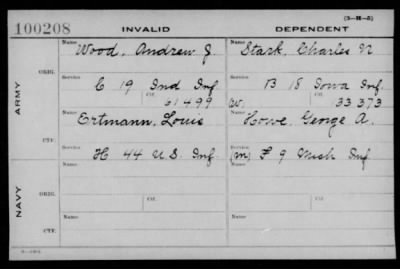 (3-H-5)
100208 INVALID DEPENDENT
Name Wood, Andrew J. Name Stark, Charles N
ORIG.
ARMY
Service C 19 Ind Inf. Service B 18 Iowa Inf.
Ctf. 61499 Ctf. (W) 33373
Name Ertmann, Louis Name Howe, George A.
CTF.
Service H 44 U.S. Inf. Service (m) F 9 Mich Inf.
NAVY
ORIG.
Ctf. Ctf.
Name Name
CTF.